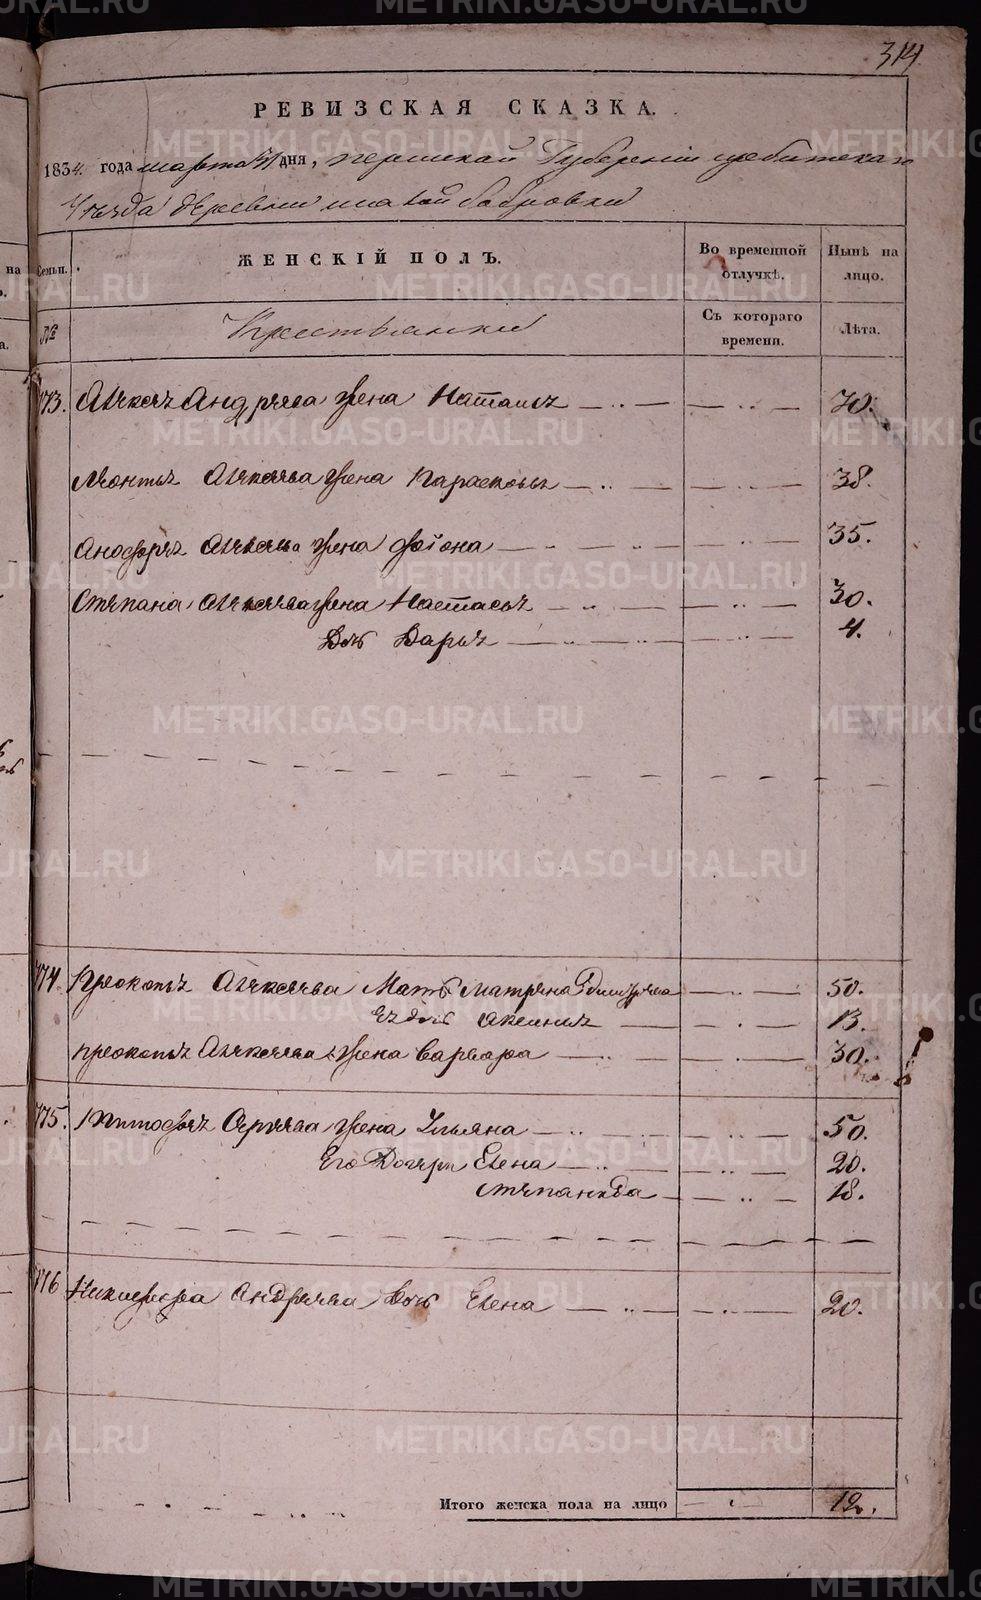 314
РЕВИЗСКАЯ СКАЗКА.
1834 года марта дня, пермской Губернии ирбитскаго
Уезда деревни малой бобровки
Семьи. ЖЕНСКІЙ ПОЛЪ. Во временной отлучкѣ. Нынѣ на лицо.
№ Крестьянки Съ котораго времени. Лѣта.
773. Алексея Андреева жена Наталья 70.
Леонтья Алексеева жена Парасковья 38.
Алексеева жена 35.
Степана Алексеева жена Настасья 30.
Дочь Дарья 4.
774. Прокопья Алексеева Мать Матрена 50.
Ее дочь Аксинья 13.
прокопья Алексеева жена варвара 30.
775. Сергеева жена Ульяна 50.
Его Дочери Елена 20.
Степанида 18.
776 Никифора Андреева дочь Елена 20.
Итого женска пола на лицо 12.
METRIKI.GASO-URAL.RU